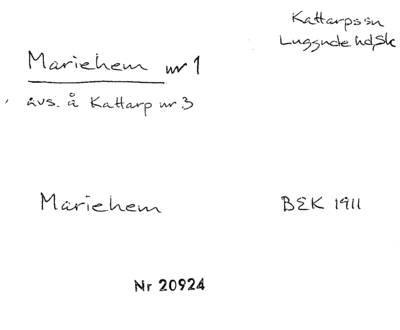 Kattarps sn
Luggude hd, Sk
Mariehem nr 1
avs. å Kattarp nr 3
Mariehem
BEK 1911
Nr 20924